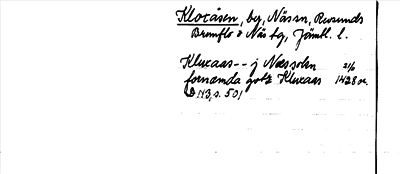 Klocåsen, by, Näs sn, Revsunds
Brunflo o Näs tg, Jämtl. l.
Kluxaas -- j Næs sokn 2/6
fornæmda godz Kluxaas 1428 or.
D N3, s. 501